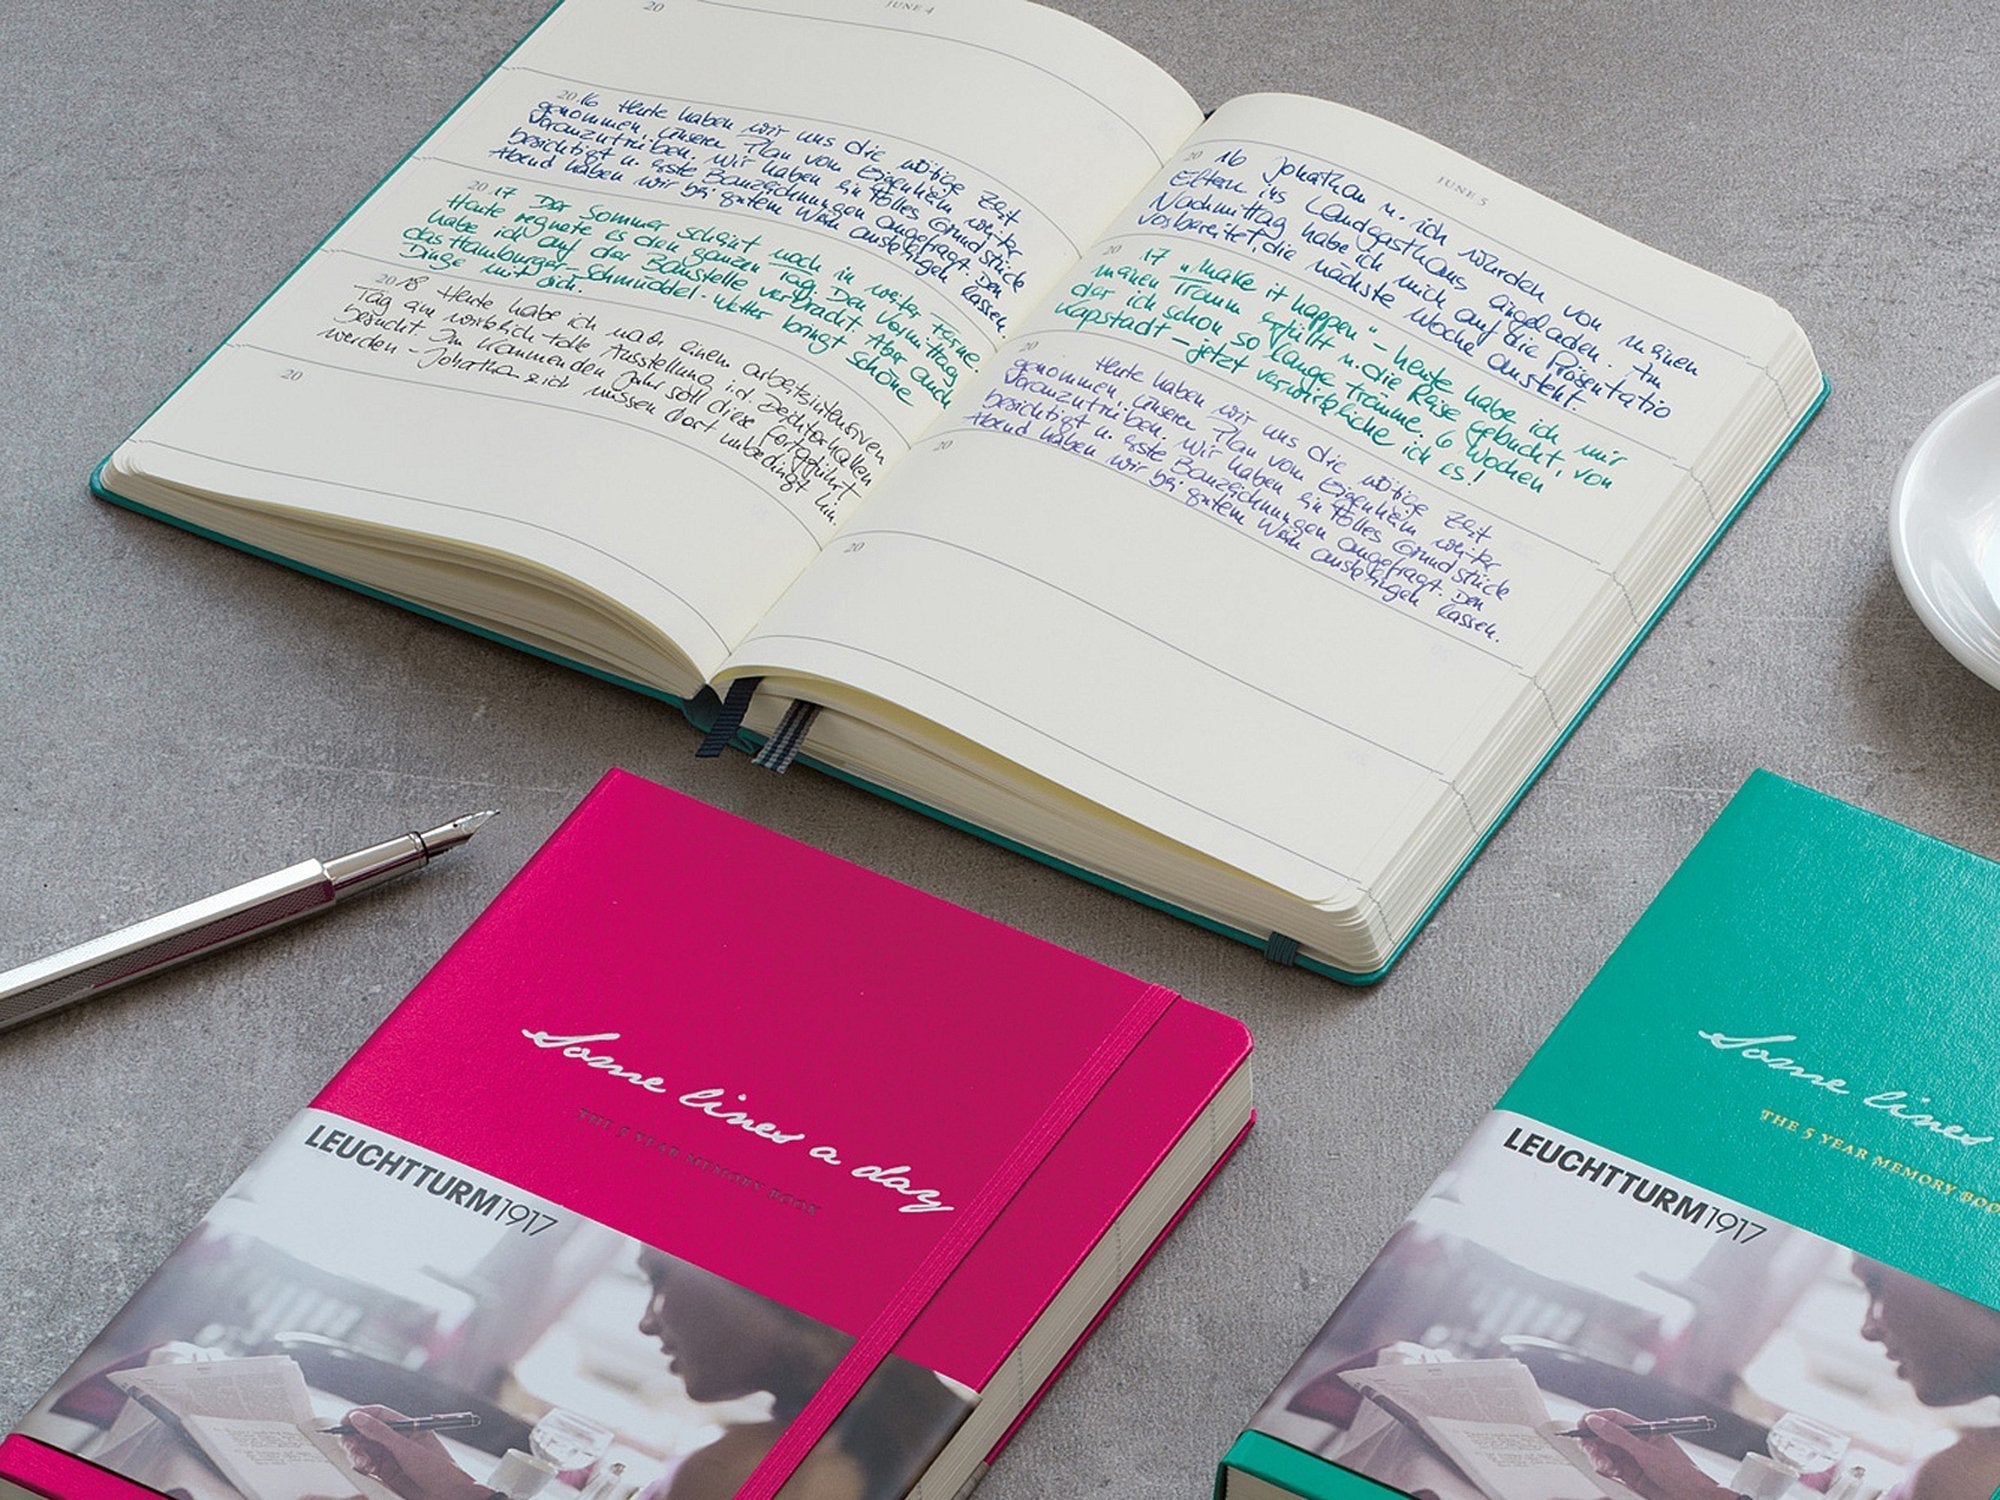 20
JUNE 4
20 16 Heute haben wir uns die nötige Zeit
genommen, unseren Plan vom Eigenheim weiter
voranzutreiben. Wir haben ein tolles Grundstück
besichtigt u. erste Bauzeichnungen angefragt. Den
Abend haben wir bei gutem Wein ausklingen lassen.
20 17 Der Sommer scheint noch in weiter Ferne.
Heute regnete es den ganzen Tag. Den Vormittag
habe ich auf der Baustelle verbracht. Aber auch
das Hamburger-Schmuddel-Wetter bringt schöne
Dinge mit sich.
20 18 Heute habe ich nach einem arbeitsintensiven
Tag am wirklich tolle Ausstellung i.d. Deichtorhallen
besucht. Im kommenden Jahr soll diese fortgeführt
werden - Jonathan & ich müssen dort unbedingt hin.
20
JUNE 5
20 16 Jonathan u. ich wurden von meinen
Eltern ins Landgasthaus eingeladen. Am
Nachmittag habe ich mich auf die Präsentatio
vorbereitet, die nächste Woche ansteht.
20 17 "Make it happen" - heute habe ich mir
meinen Traum erfüllt u. die Reise gebucht, von
der ich schon so lange träume. 6 Wochen
Kapstadt - jetzt verwirkliche ich es!
20 Heute haben wir uns die nötige Zeit
genommen, unseren Plan vom Eigenheim weiter
voranzutreiben. Wir haben ein tolles Grundstück
besichtigt u. erste Bauzeichnungen angefragt. Den
Abend haben wir bei gutem Wein ausklingen lassen.
20
20
Some lines a day
THE 5 YEAR MEMORY BOOK
LEUCHTTURM1917
Some lines
THE 5 YEAR MEMORY BOO
LEUCHTTURM1917